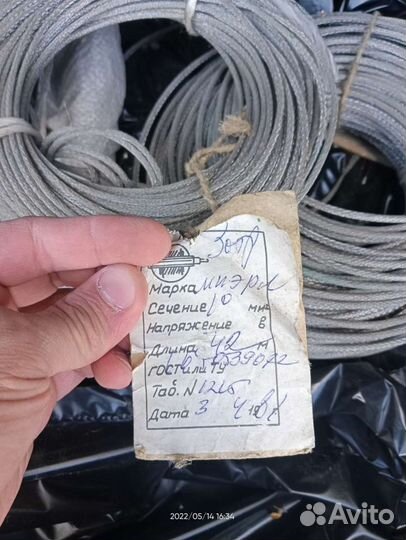 Марка МПЭРл
Сечение 10 мм
Напряжение в
Длина 42 м
ГОСТ или ТУ
Таб. N 1215
Дата 3
2022/05/14 16:34
Avito